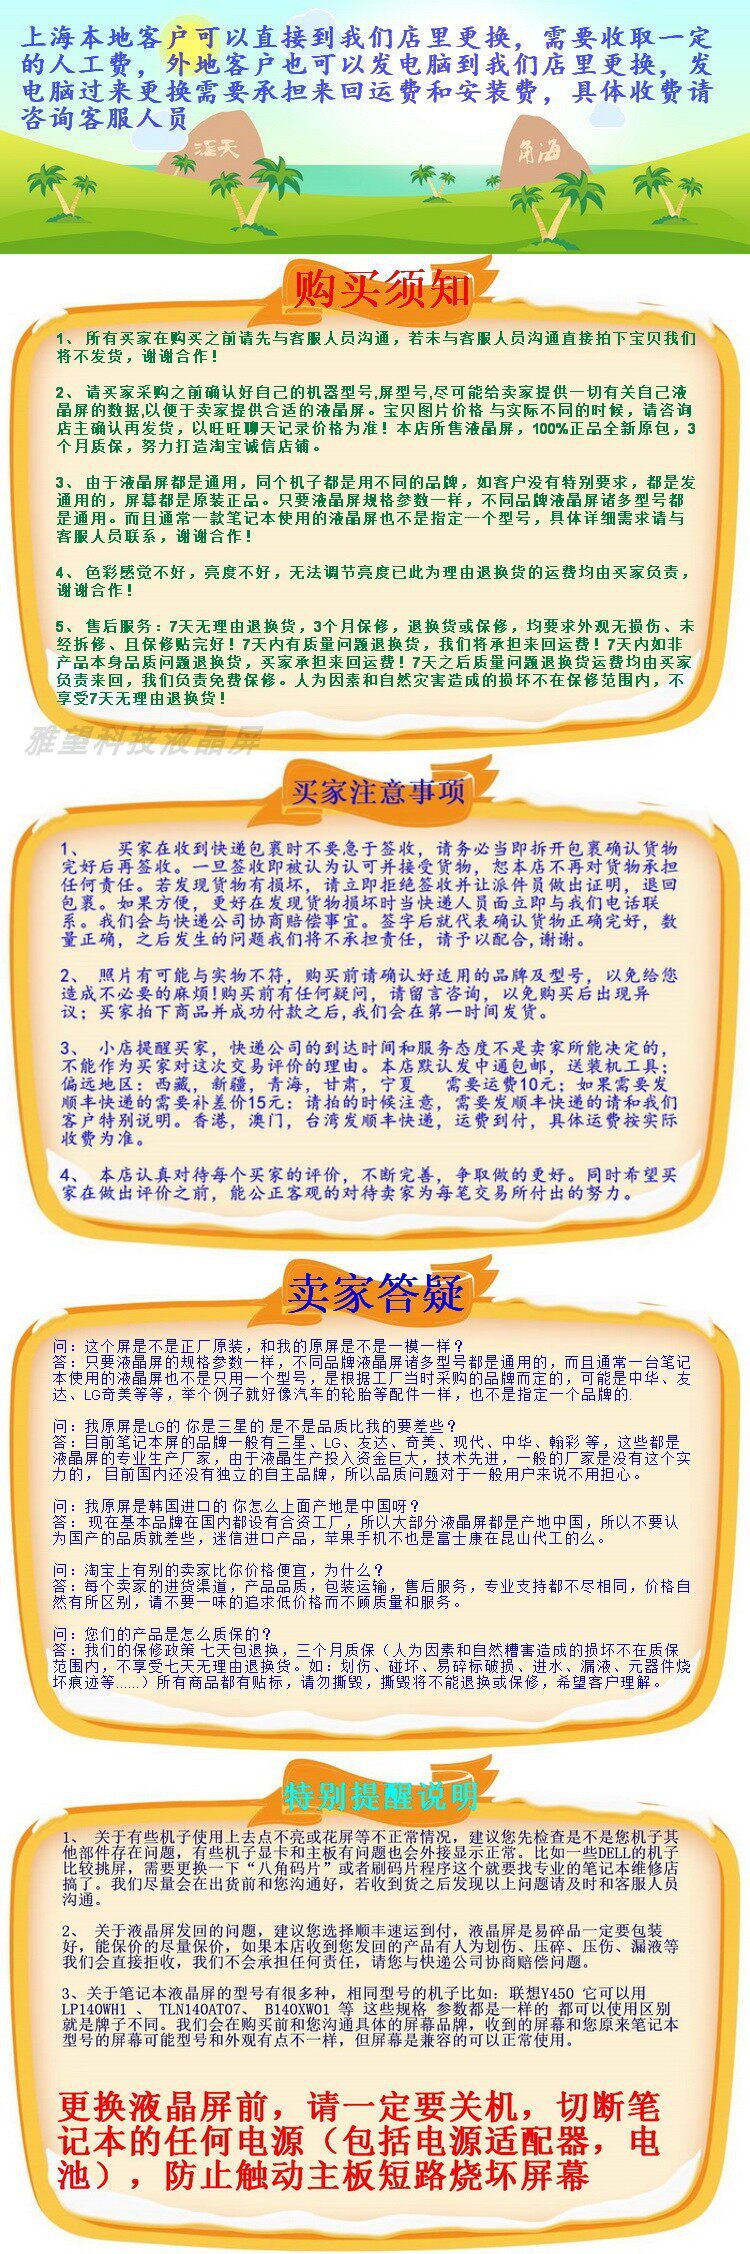 上海本地客户可以直接到我们店里更换，需要收取一定
的人工费，外地客户也可以发电脑到我们店里更换，发
电脑过来更换需要承担来回运费和安装费，具体收费请
咨询客服人员
涯天
角海
购买须知
1、 所有买家在购买之前请先与客服人员沟通，若未与客服人员沟通直接拍下宝贝我们
将不发货，谢谢合作！
2、 请买家采购之前确认好自己的机器型号,屏型号,尽可能给卖家提供一切有关自己液
晶屏的数据,以便于卖家提供合适的液晶屏。宝贝图片价格 与实际不同的时候，请咨询
店主确认再发货，以旺旺聊天记录价格为准！本店所售液晶屏，100%正品全新原包，3
个月质保，努力打造淘宝诚信店铺。
3、 由于液晶屏都是通用，同个机子都是用不同的品牌，如客户没有特别要求，都是发
通用的，屏幕都是原装正品。只要液晶屏规格参数一样，不同品牌液晶屏诸多型号都
是通用。而且通常一款笔记本使用的液晶屏也不是指定一个型号，具体详细需求请与
客服人员联系，谢谢合作！
4、 色彩感觉不好，亮度不好，无法调节亮度已此为理由退换货的运费均由买家负责，
谢谢合作！
5、 售后服务：7天无理由退换货，3个月保修，退换货或保修，均要求外观无损伤、未
经拆修、且保修贴完好！7天内有质量问题退换货，我们将承担来回运费！7天内如非
产品本身品质问题退换货，买家承担来回运费！7天之后质量问题退换货运费均由买家
负责来回，我们负责免费保修。人为因素和自然灾害造成的损坏不在保修范围内，不
享受7天无理由退换货！
雅望科技液晶屏
买家注意事项
1、 买家在收到快递包裹时不要急于签收，请务必当即拆开包裹确认货物
完好后再签收。一旦签收即被认为认可并接受货物，恕本店不再对货物承担
任何责任。若发现货物有损坏，请立即拒绝签收并让派件员做出证明，退回
包裹。如果方便，更好在发现货物损坏时当快递人员面立即与我们电话联
系。我们会与快递公司协商赔偿事宜。签字后就代表确认货物正确完好，数
量正确，之后发生的问题我们将不承担责任，请予以配合,谢谢。
2、 照片有可能与实物不符，购买前请确认好适用的品牌及型号，以免给您
造成不必要的麻烦!购买前有任何疑问，请留言咨询，以免购买后出现异
议；买家拍下商品并成功付款之后,我们会在第一时间发货。
3、 小店提醒买家，快递公司的到达时间和服务态度不是卖家所能决定的，
不能作为买家对这次交易评价的理由。本店默认发中通包邮，送装机工具；
偏远地区：西藏，新疆，青海，甘肃，宁夏 需要运费10元；如果需要发
顺丰快递的需要补差价15元：请拍的时候注意，需要发顺丰快递的请和我们
客户特别说明。香港，澳门，台湾发顺丰快递，运费到付，具体运费按实际
收费为准。
4、 本店认真对待每个买家的评价，不断完善，争取做的更好。同时希望买
家在做出评价之前，能公正客观的对待卖家为每笔交易所付出的努力。
卖家答疑
问：这个屏是不是正厂原装，和我的原屏是不是一模一样？
答：只要液晶屏的规格参数一样，不同品牌液晶屏诸多型号都是通用的，而且通常一台笔记
本使用的液晶屏也不是只用一个型号，是根据工厂当时采购的品牌而定的，可能是中华、友
达、LG奇美等等，举个例子就好像汽车的轮胎等配件一样，也不是指定一个品牌的.
问：我原屏是LG的 你是三星的 是不是品质比我的要差些？
答：目前笔记本屏的品牌一般有三星、LG、友达、奇美、现代、中华、翰彩 等，这些都是
液晶屏的专业生产厂家，由于液晶生产投入资金巨大，技术先进，一般的厂家是没有这个实
力的，目前国内还没有独立的自主品牌，所以品质问题对于一般用户来说不用担心。
问：我原屏是韩国进口的 你怎么上面产地是中国呀？
答： 现在基本品牌在国内都设有合资工厂，所以大部分液晶屏都是产地中国，所以不要认
为国产的品质就差些，迷信进口产品，苹果手机不也是富士康在昆山代工的么。
问：淘宝上有别的卖家比你价格便宜，为什么？
答：每个卖家的进货渠道，产品品质，包装运输，售后服务，专业支持都不尽相同，价格自
然有所区别，请不要一味的追求低价格而不顾质量和服务。
问：您们的产品是怎么质保的？
答：我们的保修政策 七天包退换，三个月质保（人为因素和自然糟害造成的损坏不在质保
范围内，不享受七天无理由退换货。如：划伤、碰坏、易碎标破损、进水、漏液、元器件烧
坏痕迹等......）所有商品都有贴标，请勿撕毁，撕毁将不能退换或保修，希望客户理解。
特别提醒说明
1、 关于有些机子使用上去点不亮或花屏等不正常情况，建议您先检查是不是您机子其
他部件存在问题，有些机子显卡和主板有问题也会外接显示正常。比如一些DELL的机子
比较挑屏，需要更换一下“八角码片”或者刷码片程序这个就要找专业的笔记本维修店
搞了。我们尽量会在出货前和您沟通好，若收到货之后发现以上问题请及时和客服人员
沟通。
2、 关于液晶屏发回的问题，建议您选择顺丰速运到付，液晶屏是易碎品一定要包装
好，能保价的尽量保价，如果本店收到您发回的产品有人为划伤、压碎、压伤、漏液等
我们会直接拒收，我们不会承担任何责任，请您与快递公司协商赔偿问题。
3、关于笔记本液晶屏的型号有很多种，相同型号的机子比如：联想Y450 它可以用
LP140WH1 、 TLN140AT07、 B140XW01 等 这些规格 参数都是一样的 都可以使用区别
就是牌子不同。我们会在购买前和您沟通具体的屏幕品牌，收到的屏幕和您原来笔记本
型号的屏幕可能型号和外观有点不一样，但屏幕是兼容的可以正常使用。
更换液晶屏前，请一定要关机，切断笔
记本的任何电源（包括电源适配器，电
池），防止触动主板短路烧坏屏幕